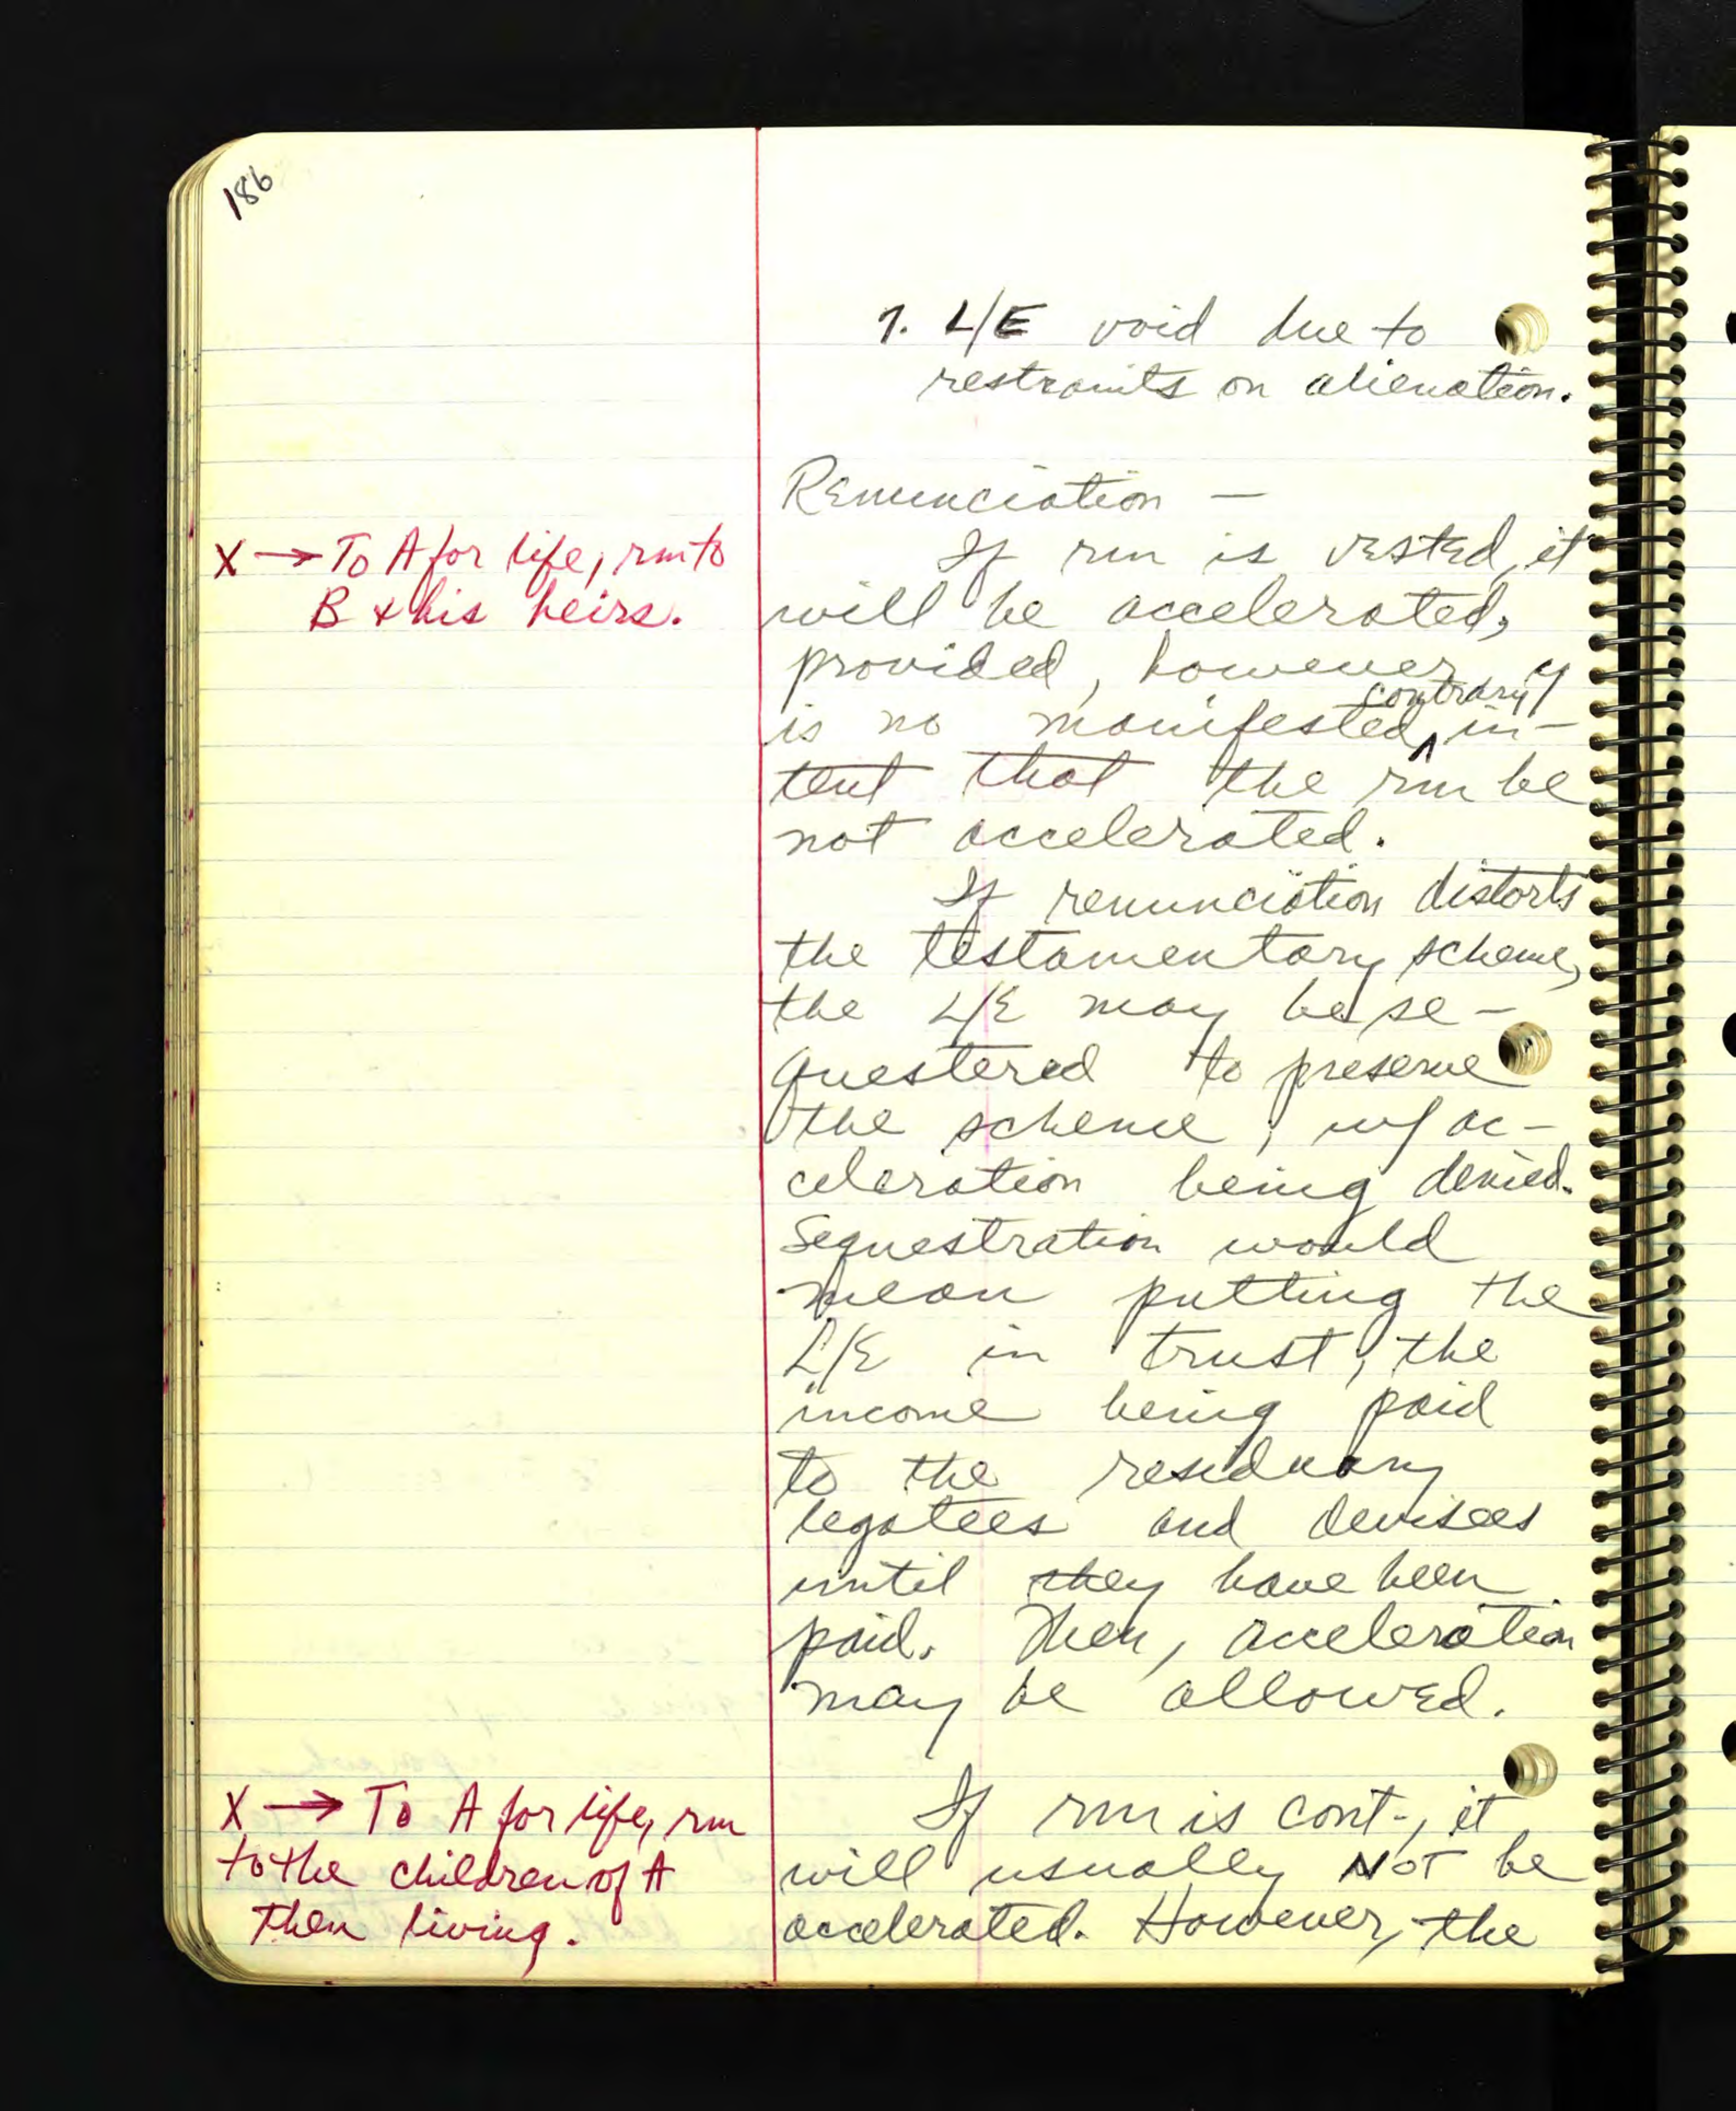 186
7. L/E void due to
restraints on alienation.
Renunciation —
X → To A for life, rm to
B & his heirs.
If rm is vested, it
will be accelerated,
provided, however,
contrary
is no manifested ^ in-
tent that the rm be
not accelerated.
If renunciation distorts
the testamentary scheme,
the L/E may be se-
questered to preserve
the scheme, w/ ac-
celeration being denied.
Sequestration would
mean putting the
L/E in trust, the
income being paid
to the residuary
legatees and devisees
until they have been
paid. Then, acceleration
may be allowed.
X → To A for life, rm
to the children of A
then living.
If rm is cont-, it
will usually NOT be
accelerated. However, the